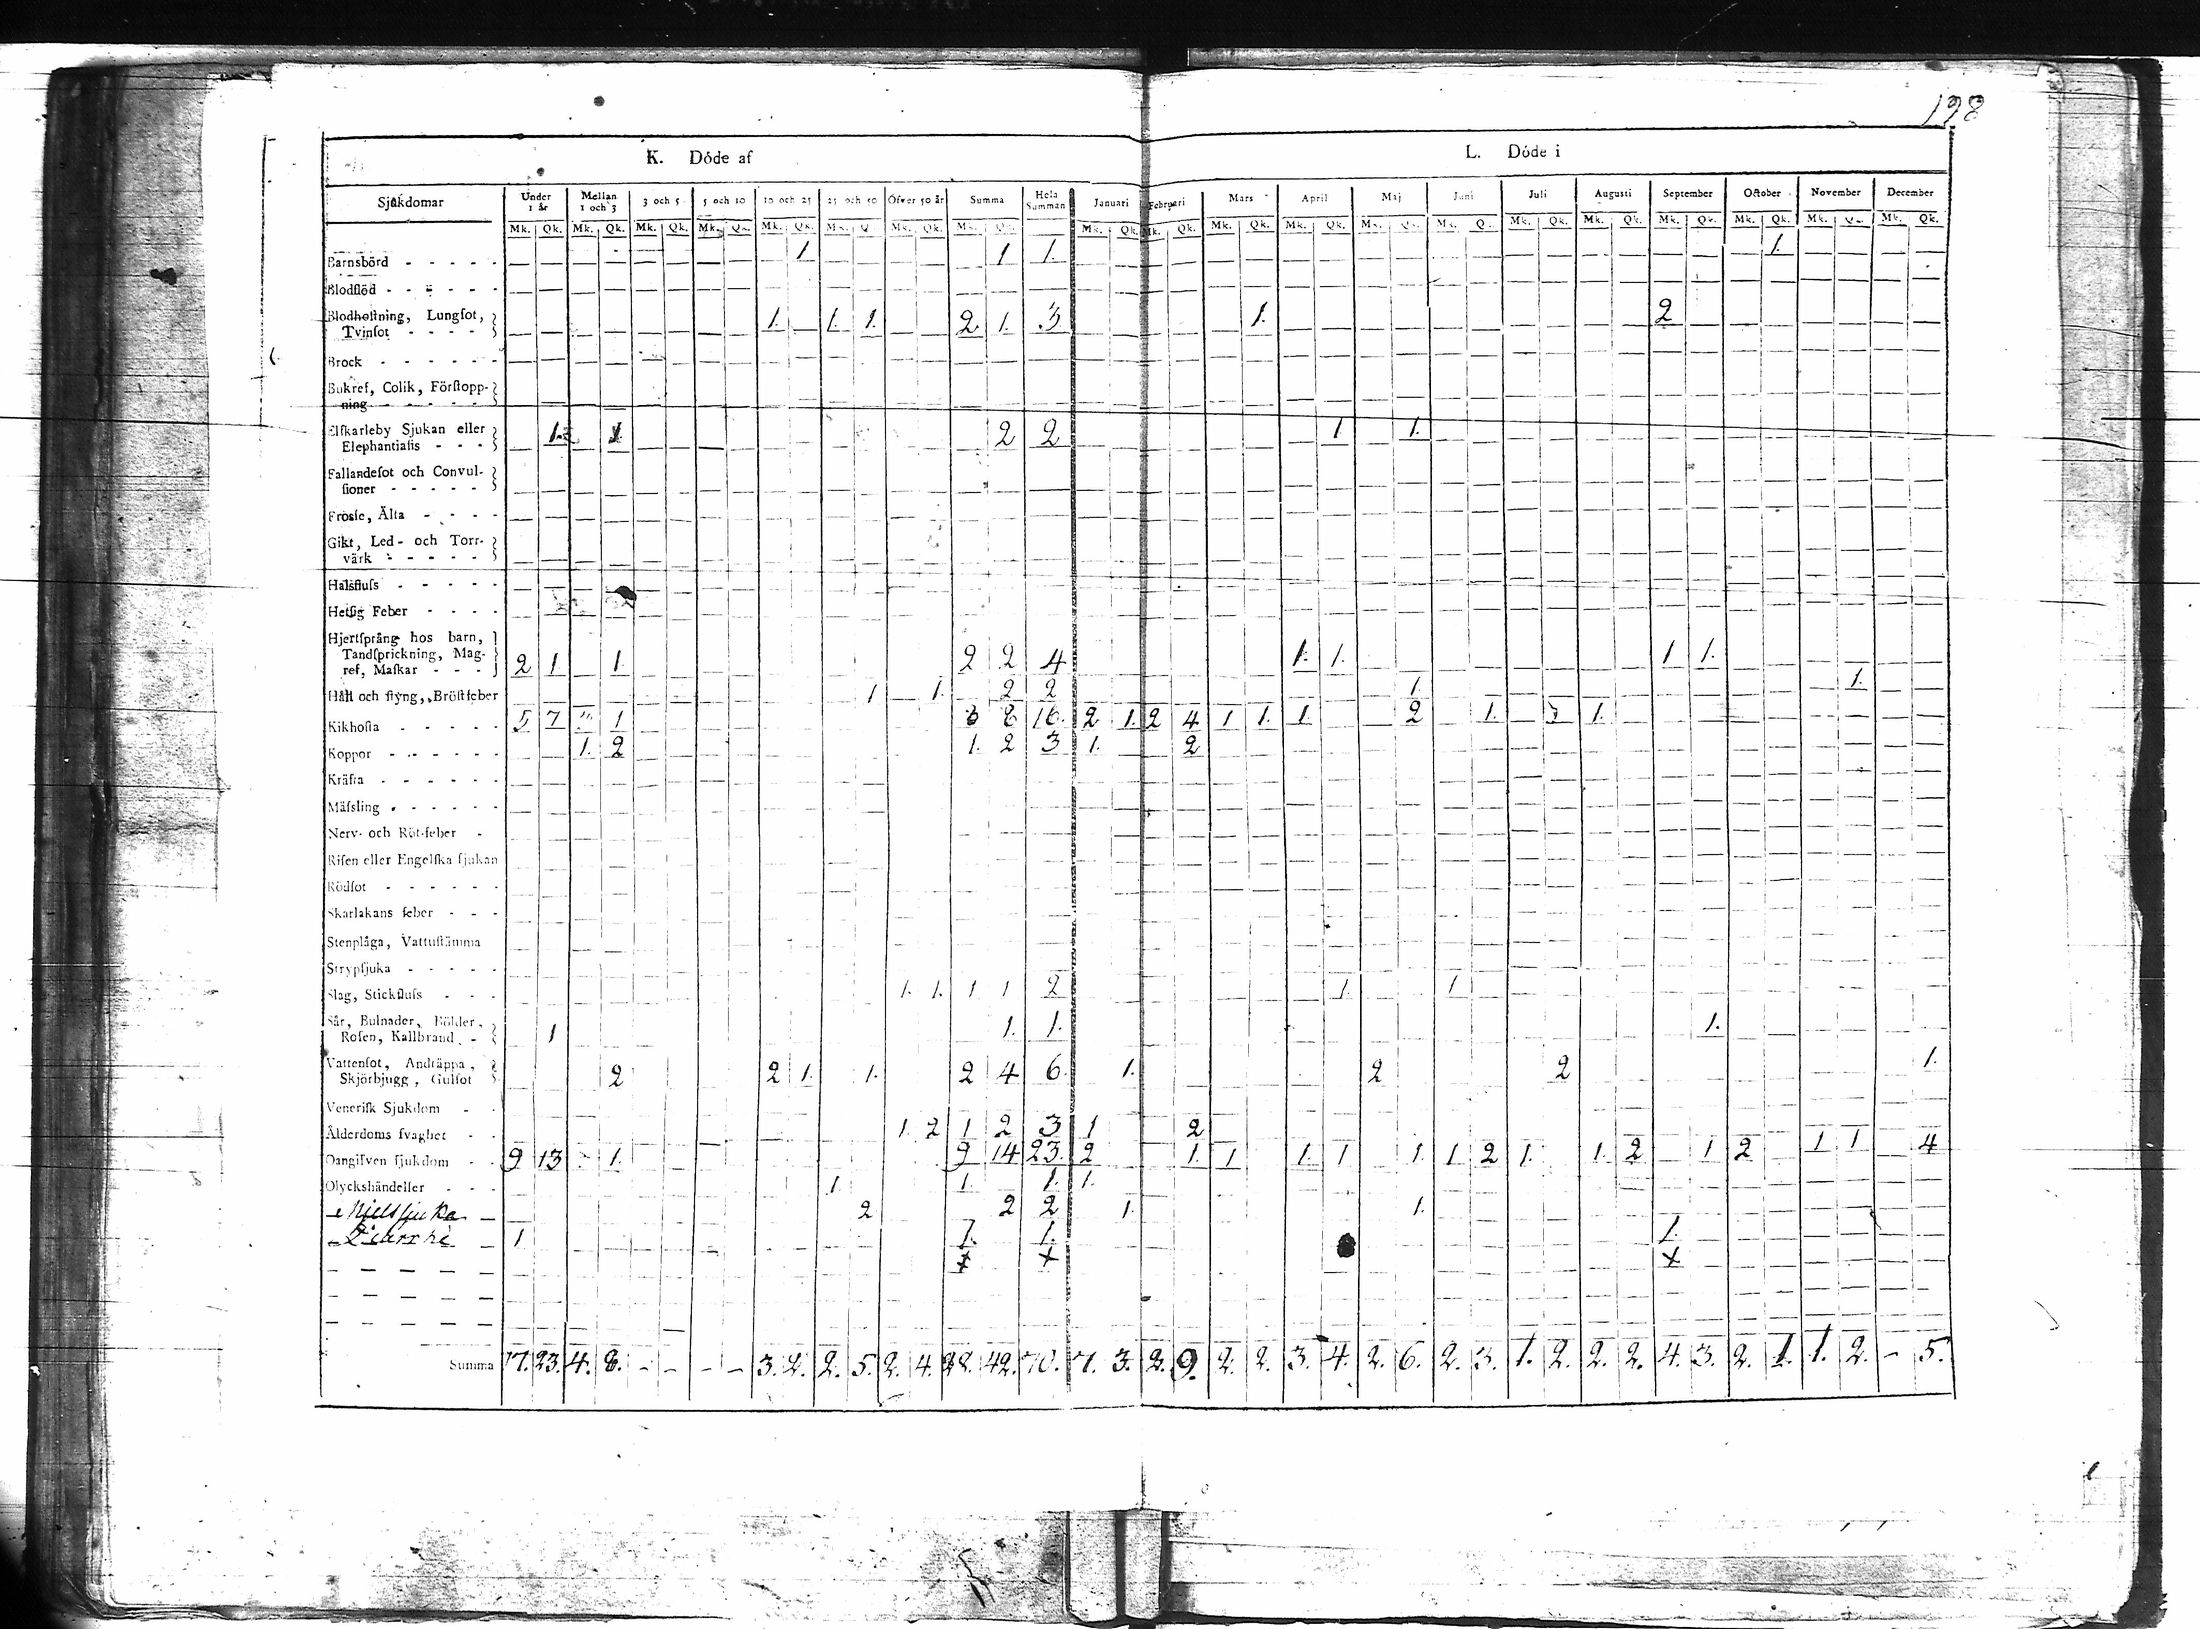 198
K. Döde af L. Döde i
Sjükdomar Under 1 år Mellan 1 och 3 3 och 5 5 och 10 10 och 25 25 och 50 Öfver 50 år Summa Hela Summan Januari Februari Mars April Maj Juni Juli Augusti September October November December
Mk. Qk. Mk. Qk. Mk. Qk. Mk. Qk. Mk. Qk. Mk. Qk. Mk. Qk. Mk. Qk. Mk. Qk. Mk. Qk. Mk. Qk. Mk. Qk. Mk. Qk. Mk. Qk. Mk. Qk. Mk. Qk. Mk. Qk. Mk. Qk. Mk. Qk. Mk. Qk.
Barnsbörd - - - - - 1 1 1. 1.
Blodflöd - - - - - -
Blodhoſtning, Lungſot,
Tvinſot - - - - 1. 1. 1. 2. 1. 3 1. 2.
Brock - - - - - -
Bukref, Colik, Förſtopp-
ning - - - - - -
Elfkarleby Sjukan eller
Elephantiaſis - - - 1. 1 2 2 1 1.
Fallandeſot och Convul-
ſioner - - - - -
Froſſe, Älta - - - -
Gikt, Led- och Torr-
värk - - - - -
Halsfluſs - - - - -
Hetſig Feber - - - -
Hjertſprång hos barn,
Tandſprickning, Mag-
ref, Maſkar - - - 2 1. 1. 2 2 4 1. 1. 1 1.
Håll och ſtyng, Bröſtfeber 1 1. 2 2 1. 1.
Kikhoſta - - - - - 5 7 " 1 8 16. 2 1. 2 4 1 1. 1. 2 1. 1.
Koppor - - - - - - 1. 2 1. 2 3 1. 2
Kräfta - - - - - -
Mäſsling - - - - - -
Nerv- och Röt-feber -
Riſen eller Engelſka ſjukan
Rödſot - - - - - -
Skarlakans feber - - -
Stenplåga, Vattuſtämma
Strypſjuka - - - - -
Slag, Stickfluſs - - - 1. 1. 1 1 2 1. 1
Sår, Bulnader, Bölder,
Roſen, Kallbrand - 1 1. 1. 1.
Vattenſot, Andtäppa,
Skjörbjugg, Gulſot 2 2 1. 1. 2 4 6. 1. 2 2 1.
Veneriſk Sjukdom - -
Ålderdoms ſvaghet - - 1. 2 1 2 3 1 2
Oangifven ſjukdom - - 9 13 1. 9 14 23. 2 1. 1 1. 1 1. 1 2 1. 1. 2 1 2 1 1 4
Olyckshändelſer - - - 1. 1. 1. 1.
Mjeltſjuka 2 2 2 1. 1.
Diarrhé 1 1. 1. 1.
x x x
Summa 17. 23. 4. 8. - - - - 3. 2. 2. 5. 2. 4. 28. 42. 70. 7. 3. 2. 9. 2. 2. 3. 4. 2. 6. 2. 3. 1. 2. 2. 2. 4. 3. 2. 1. 1. 2. - 5.